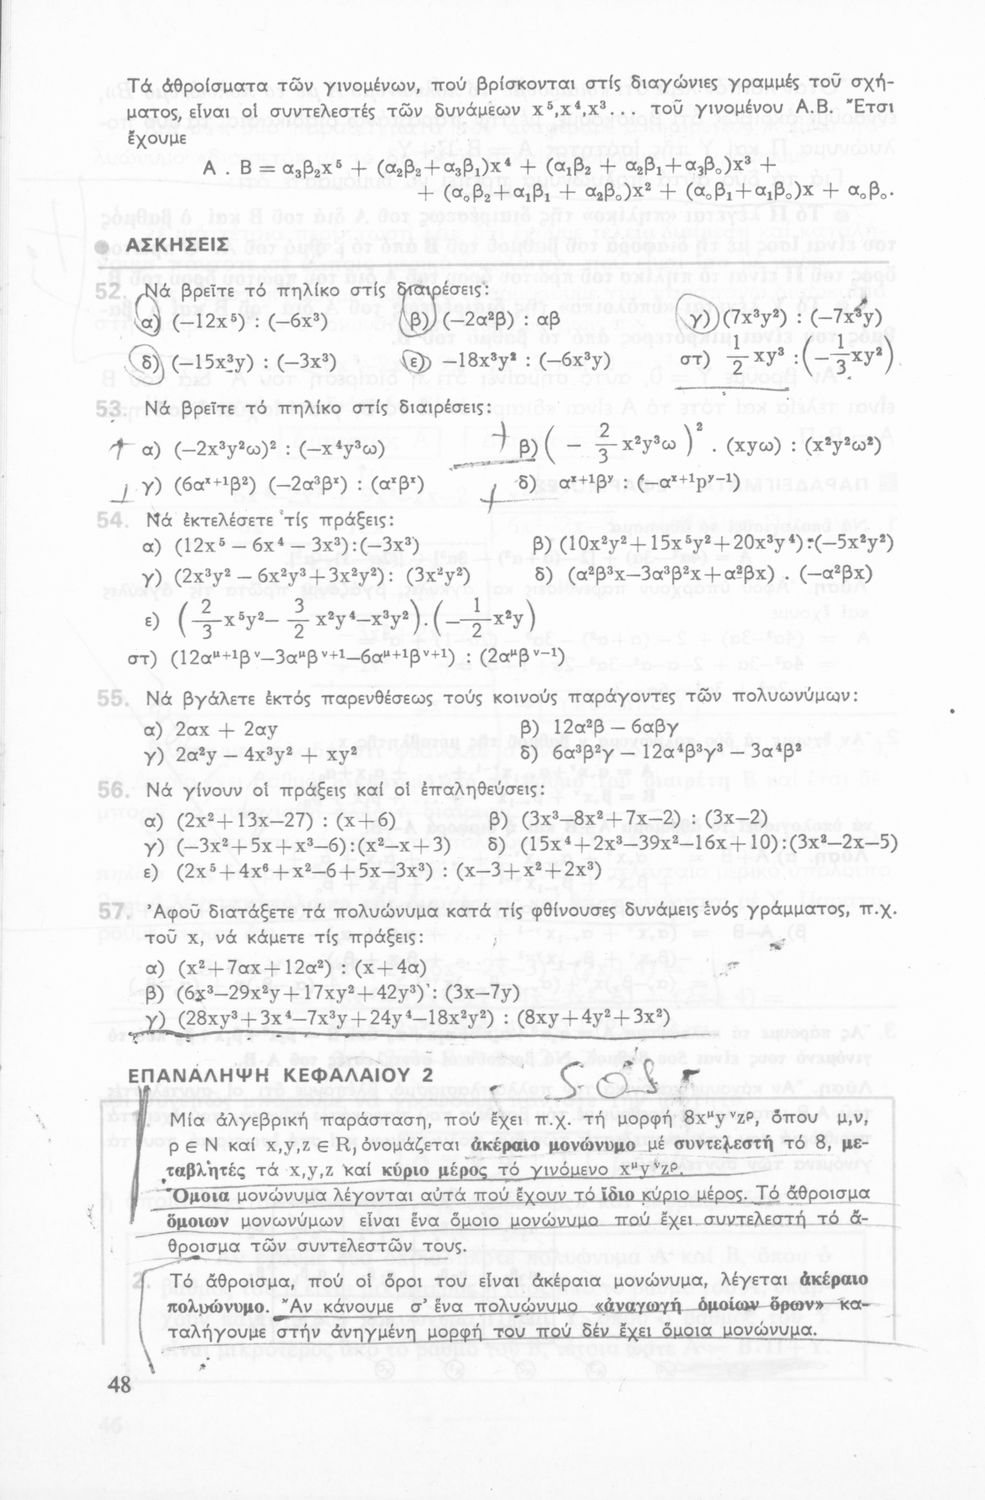 Τά ἀθροίσματα τῶν γινομένων, πού βρίσκονται στίς διαγώνιες γραμμές τοῦ σχή-
ματος, εἶναι οἱ συντελεστές τῶν δυνάμεων x⁵,x⁴,x³... τοῦ γινομένου Α.Β. Ἔτσι
ἔχουμε
Α . Β = α₃β₂x⁵ + (α₂β₂+α₃β₁)x⁴ + (α₁β₂ + α₂β₁+α₃β₀)x³ +
+ (α₀β₂+α₁β₁ + α₂β₀)x² + (α₀β₁+α₁β₀)x + α₀β₀.
ΑΣΚΗΣΕΙΣ
52. Νά βρεῖτε τό πηλίκο στίς διαιρέσεις:
α) (—12x⁵) : (—6x³) β) (—2α³β) : αβ γ) (7x³y²) : (—7x²y)
δ) (—15x³y) : (—3x³) ε) —18x³y² : (—6x³y) στ) 1/2 xy³ : (— 1/3 xy²)
53. Νά βρεῖτε τό πηλίκο στίς διαιρέσεις:
α) (—2x³y²ω)² : (—x⁴y³ω) β) ( — 2/3 x²y³ω )² . (xyω) : (x²y²ω²)
γ) (6αˣ⁺¹β²) (—2α³βˣ) : (αˣβˣ) δ) αˣ⁺¹βʸ : (—αˣ⁺¹pʸ⁻¹)
54. Νά ἐκτελέσετε τίς πράξεις:
α) (12x⁵ — 6x⁴ — 3x³):(—3x³) β) (10x²y²+15x⁵y²+20x³y⁴):(—5x²y²)
γ) (2x³y² — 6x²y³+3x²y²): (3x²y²) δ) (α²β³x—3α³β²x+α²βx) . (—α²βx)
ε) ( 2/3 x⁵y²— 3/2 x²y⁴—x³y²).(— 1/2 x²y)
στ) (12αᵘ⁺¹βᵛ—3αᵘβᵛ⁺¹—6αᵘ⁺¹βᵛ⁺¹) : (2αᵘβᵛ⁻¹)
55. Νά βγάλετε ἐκτός παρενθέσεως τούς κοινούς παράγοντες τῶν πολυωνύμων:
α) 2αx + 2αy β) 12α²β — 6αβγ
γ) 2α²y — 4x³y² + xy² δ) 6α³β²γ — 12α⁴β³γ³ — 3α⁴β²
56. Νά γίνουν οἱ πράξεις καί οἱ ἐπαληθεύσεις:
α) (2x²+13x—27) : (x+6) β) (3x³—8x²+7x—2) : (3x—2)
γ) (—3x²+5x+x³—6):(x²—x+3) δ) (15x⁴+2x³—39x²—16x+10):(3x²—2x—5)
ε) (2x⁵+4x⁶+x²—6+5x—3x³) : (x—3+x²+2x³)
57. Ἀφοῦ διατάξετε τά πολυώνυμα κατά τίς φθίνουσες δυνάμεις ἑνός γράμματος, π.χ.
τοῦ x, νά κάμετε τίς πράξεις:
α) (x²+7αx+12α²) : (x+4α)
β) (6x³—29x²y+17xy²+42y³) : (3x—7y)
γ) (28xy³+3x⁴—7x³y+24y⁴—18x²y²) : (8xy+4y²+3x²)
ΕΠΑΝΑΛΗΨΗ ΚΕΦΑΛΑΙΟΥ 2
Μία ἀλγεβρική παράσταση, πού ἔχει π.χ. τή μορφή 8xᵘyᵛzᵖ, ὅπου μ,ν,
ρ ∈ Ν καί x,y,z ∈ R, ὀνομάζεται ἀκέραιο μονώνυμο μέ συντελεστή τό 8, με-
ταβλητές τά x,y,z καί κύριο μέρος τό γινόμενο xᵘyᵛzᵖ.
Ὅμοια μονώνυμα λέγονται αὐτά πού ἔχουν τό ἴδιο κύριο μέρος. Τό ἄθροισμα
ὅμοιων μονωνύμων εἶναι ἕνα ὅμοιο μονώνυμο πού ἔχει συντελεστή τό ἄ-
θροισμα τῶν συντελεστῶν τους.
2. Τό ἄθροισμα, πού οἱ ὅροι του εἶναι ἀκέραια μονώνυμα, λέγεται ἀκέραιο
πολυώνυμο. Ἄν κάνουμε σ' ἕνα πολυώνυμο «ἀναγωγή ὁμοίων ὅρων» κα-
ταλήγουμε στήν ἀνηγμένη μορφή του πού δέν ἔχει ὅμοια μονώνυμα.
48